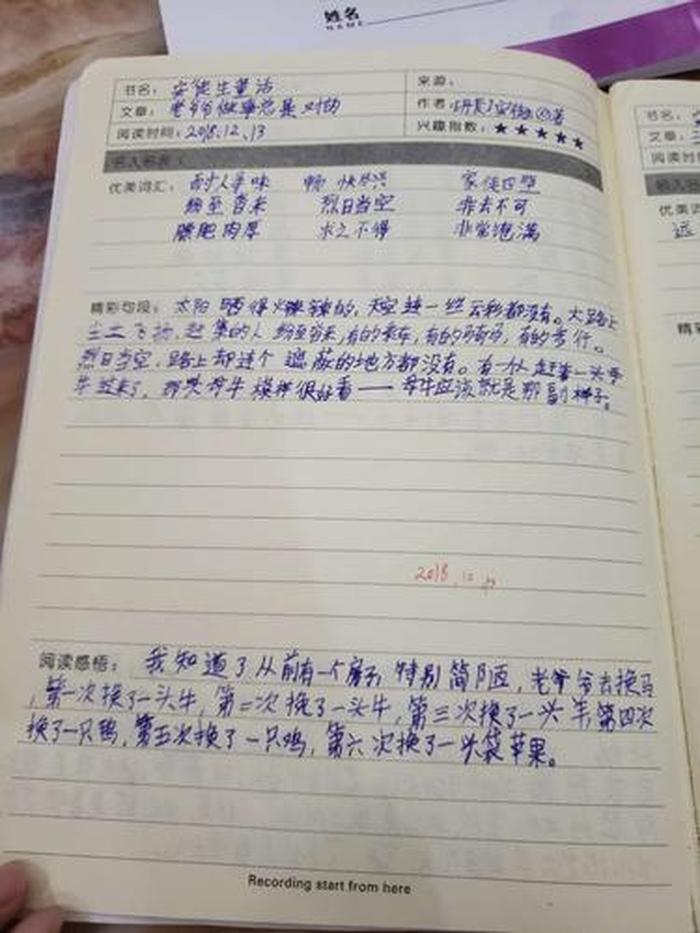 姓名
NAME
书名：安徒生童话
来源：
文章：老爷爷做事总是对的
作者：[丹麦]安徒生◎著
阅读时间：2018.12.13
兴趣指数：★★★★★
优美词汇：耐人寻味 畅快尽兴 家徒四壁
纷至沓来 烈日当空 非去不可
膘肥肉厚 求之不得 非常饱满
精彩句段：太阳晒得火辣辣的，天空连一些云彩都没有。大路上
尘土飞扬，赶集的人纷至沓来，有的乘车，有的骑马，有的步行。
烈日当空，路上却连个遮蔽的地方都没有。有一个人赶着一头母
牛过来了，那头母牛模样很好看——母牛应该就是那副样子。
2018.12
阅读感悟：我知道了从前有一个房子特别简陋，老爷爷去换马
，第一次换了一头牛，第二次换了一头牛，第三次换了一头羊，第四次
换了一只鹅，第五次换了一只鸡，第六次换了一头袋苹果。
Recording start from here
书名：
文章：
阅读时
优美词
远
精彩